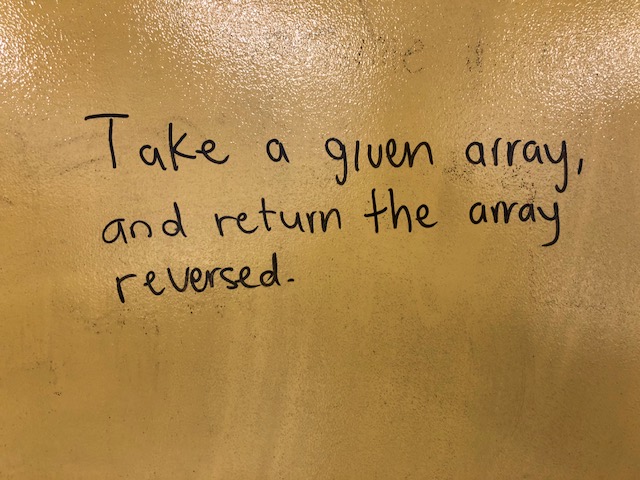 Take a given array,
and return the array
reversed.